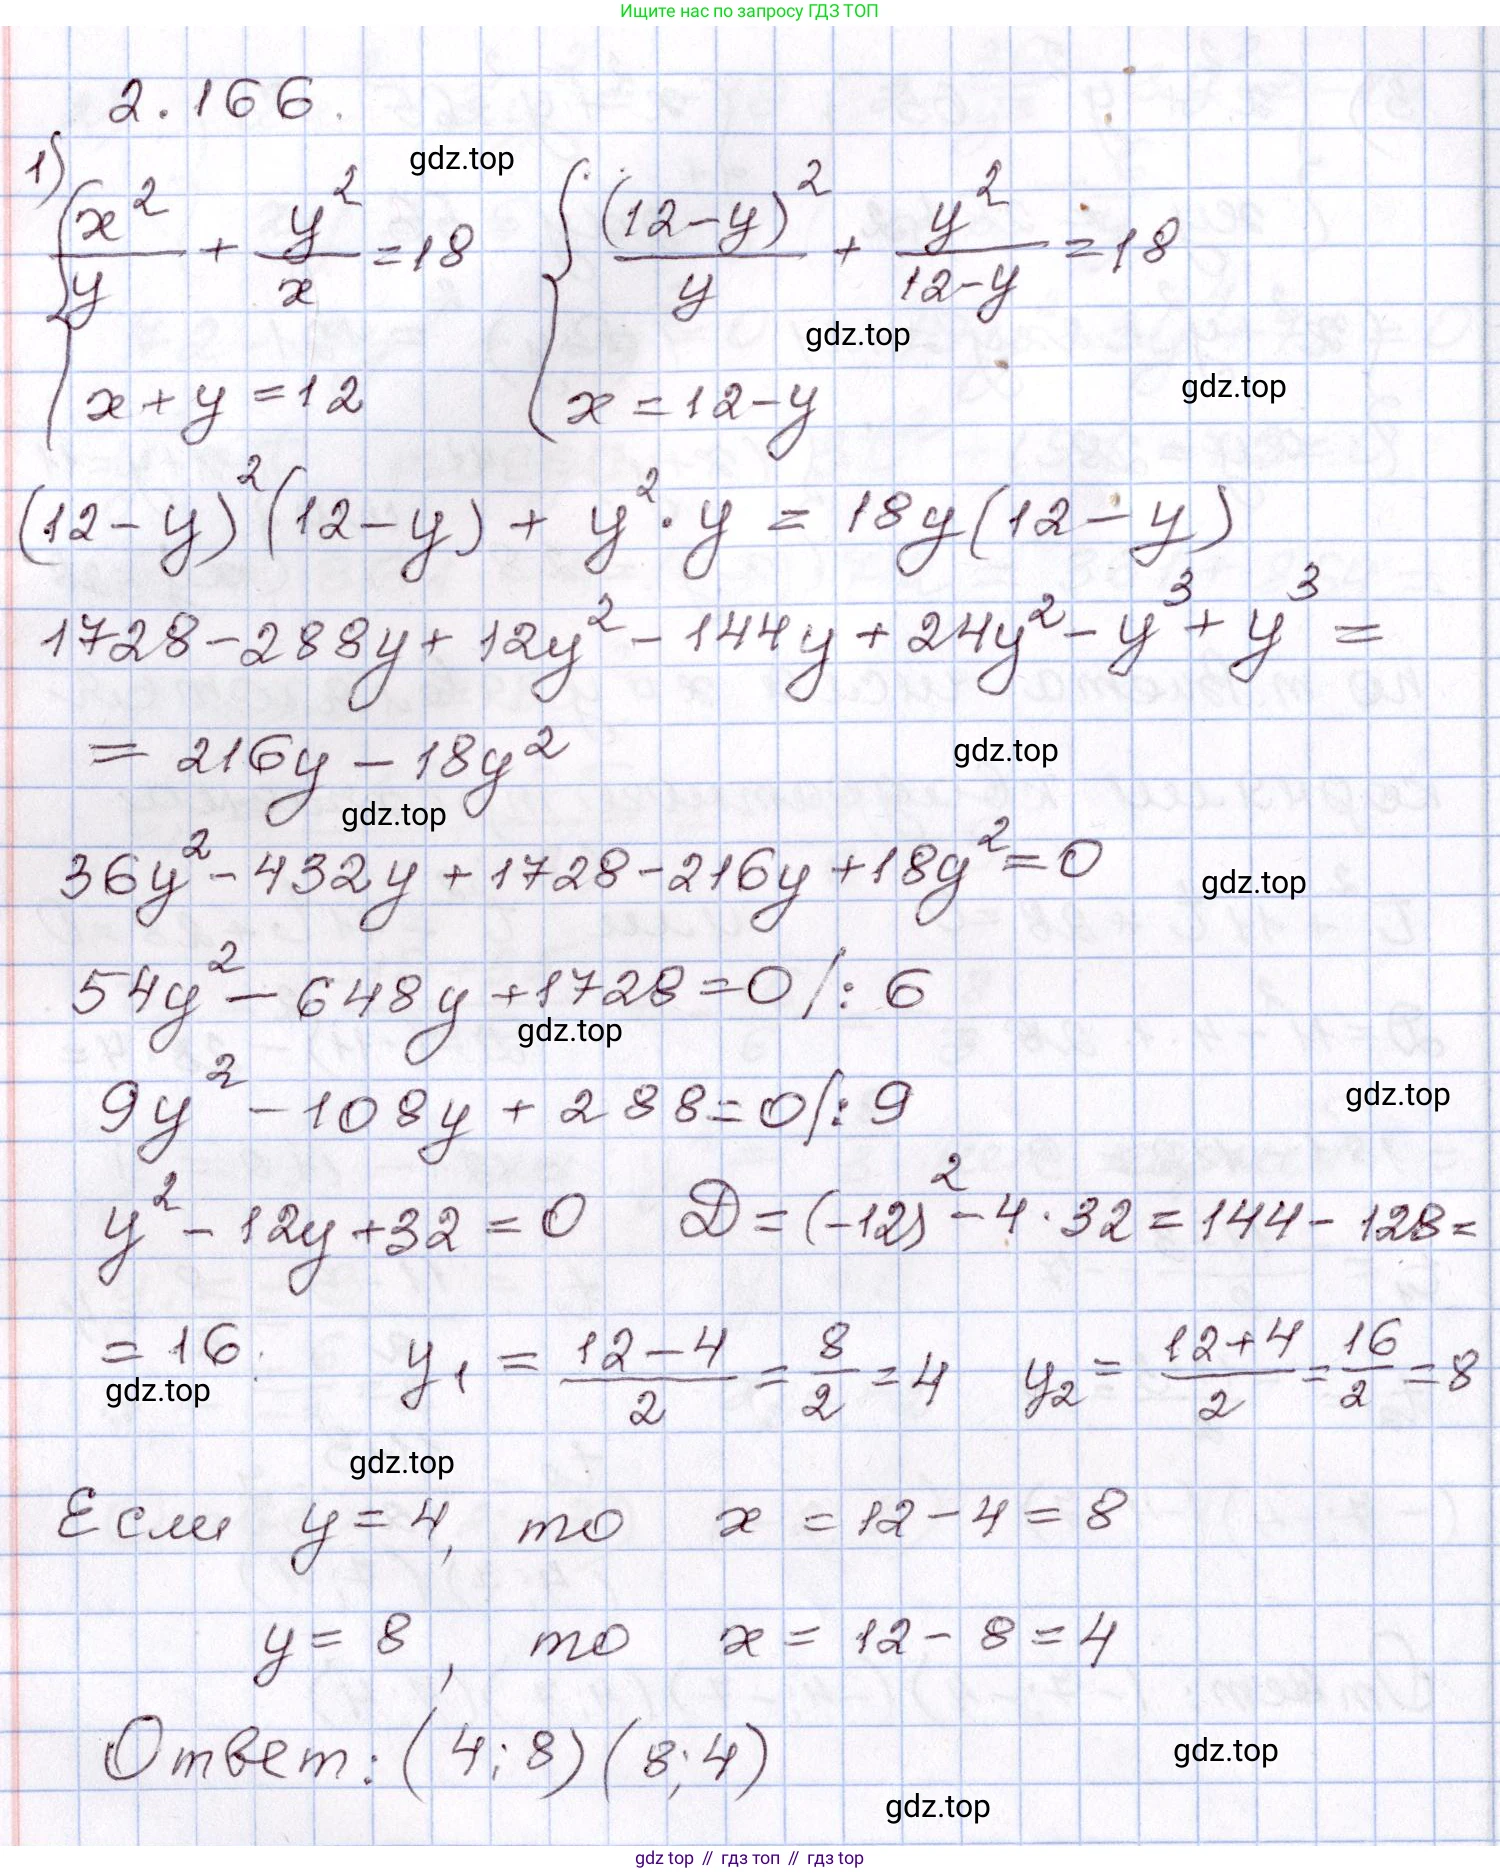 Ищите нас по запросу ГДЗ ТОП
2.166.
gdz.top
1) { x²/y + y²/x = 18   { (12-y)²/y + y²/(12-y) = 18
gdz.top
x + y = 12   x = 12 - y
gdz.top
(12-y)²(12-y) + y²·y = 18y(12-y)
1728 - 288y + 12y² - 144y + 24y² - y³ + y³ =
= 216y - 18y²
gdz.top
gdz.top
36y² - 432y + 1728 - 216y + 18y² = 0
gdz.top
54y² - 648y + 1728 = 0 /: 6
gdz.top
9y² - 108y + 288 = 0 /: 9
gdz.top
y² - 12y + 32 = 0   D = (-12)² - 4·32 = 144 - 128 =
= 16.   y₁ = (12-4)/2 = 8/2 = 4   y₂ = (12+4)/2 = 16/2 = 8
gdz.top
gdz.top
Если y = 4, то x = 12 - 4 = 8
y = 8, то x = 12 - 8 = 4
Ответ: (4; 8) (8; 4)
gdz.top
gdz.top
gdz top // гдз топ // гдз top